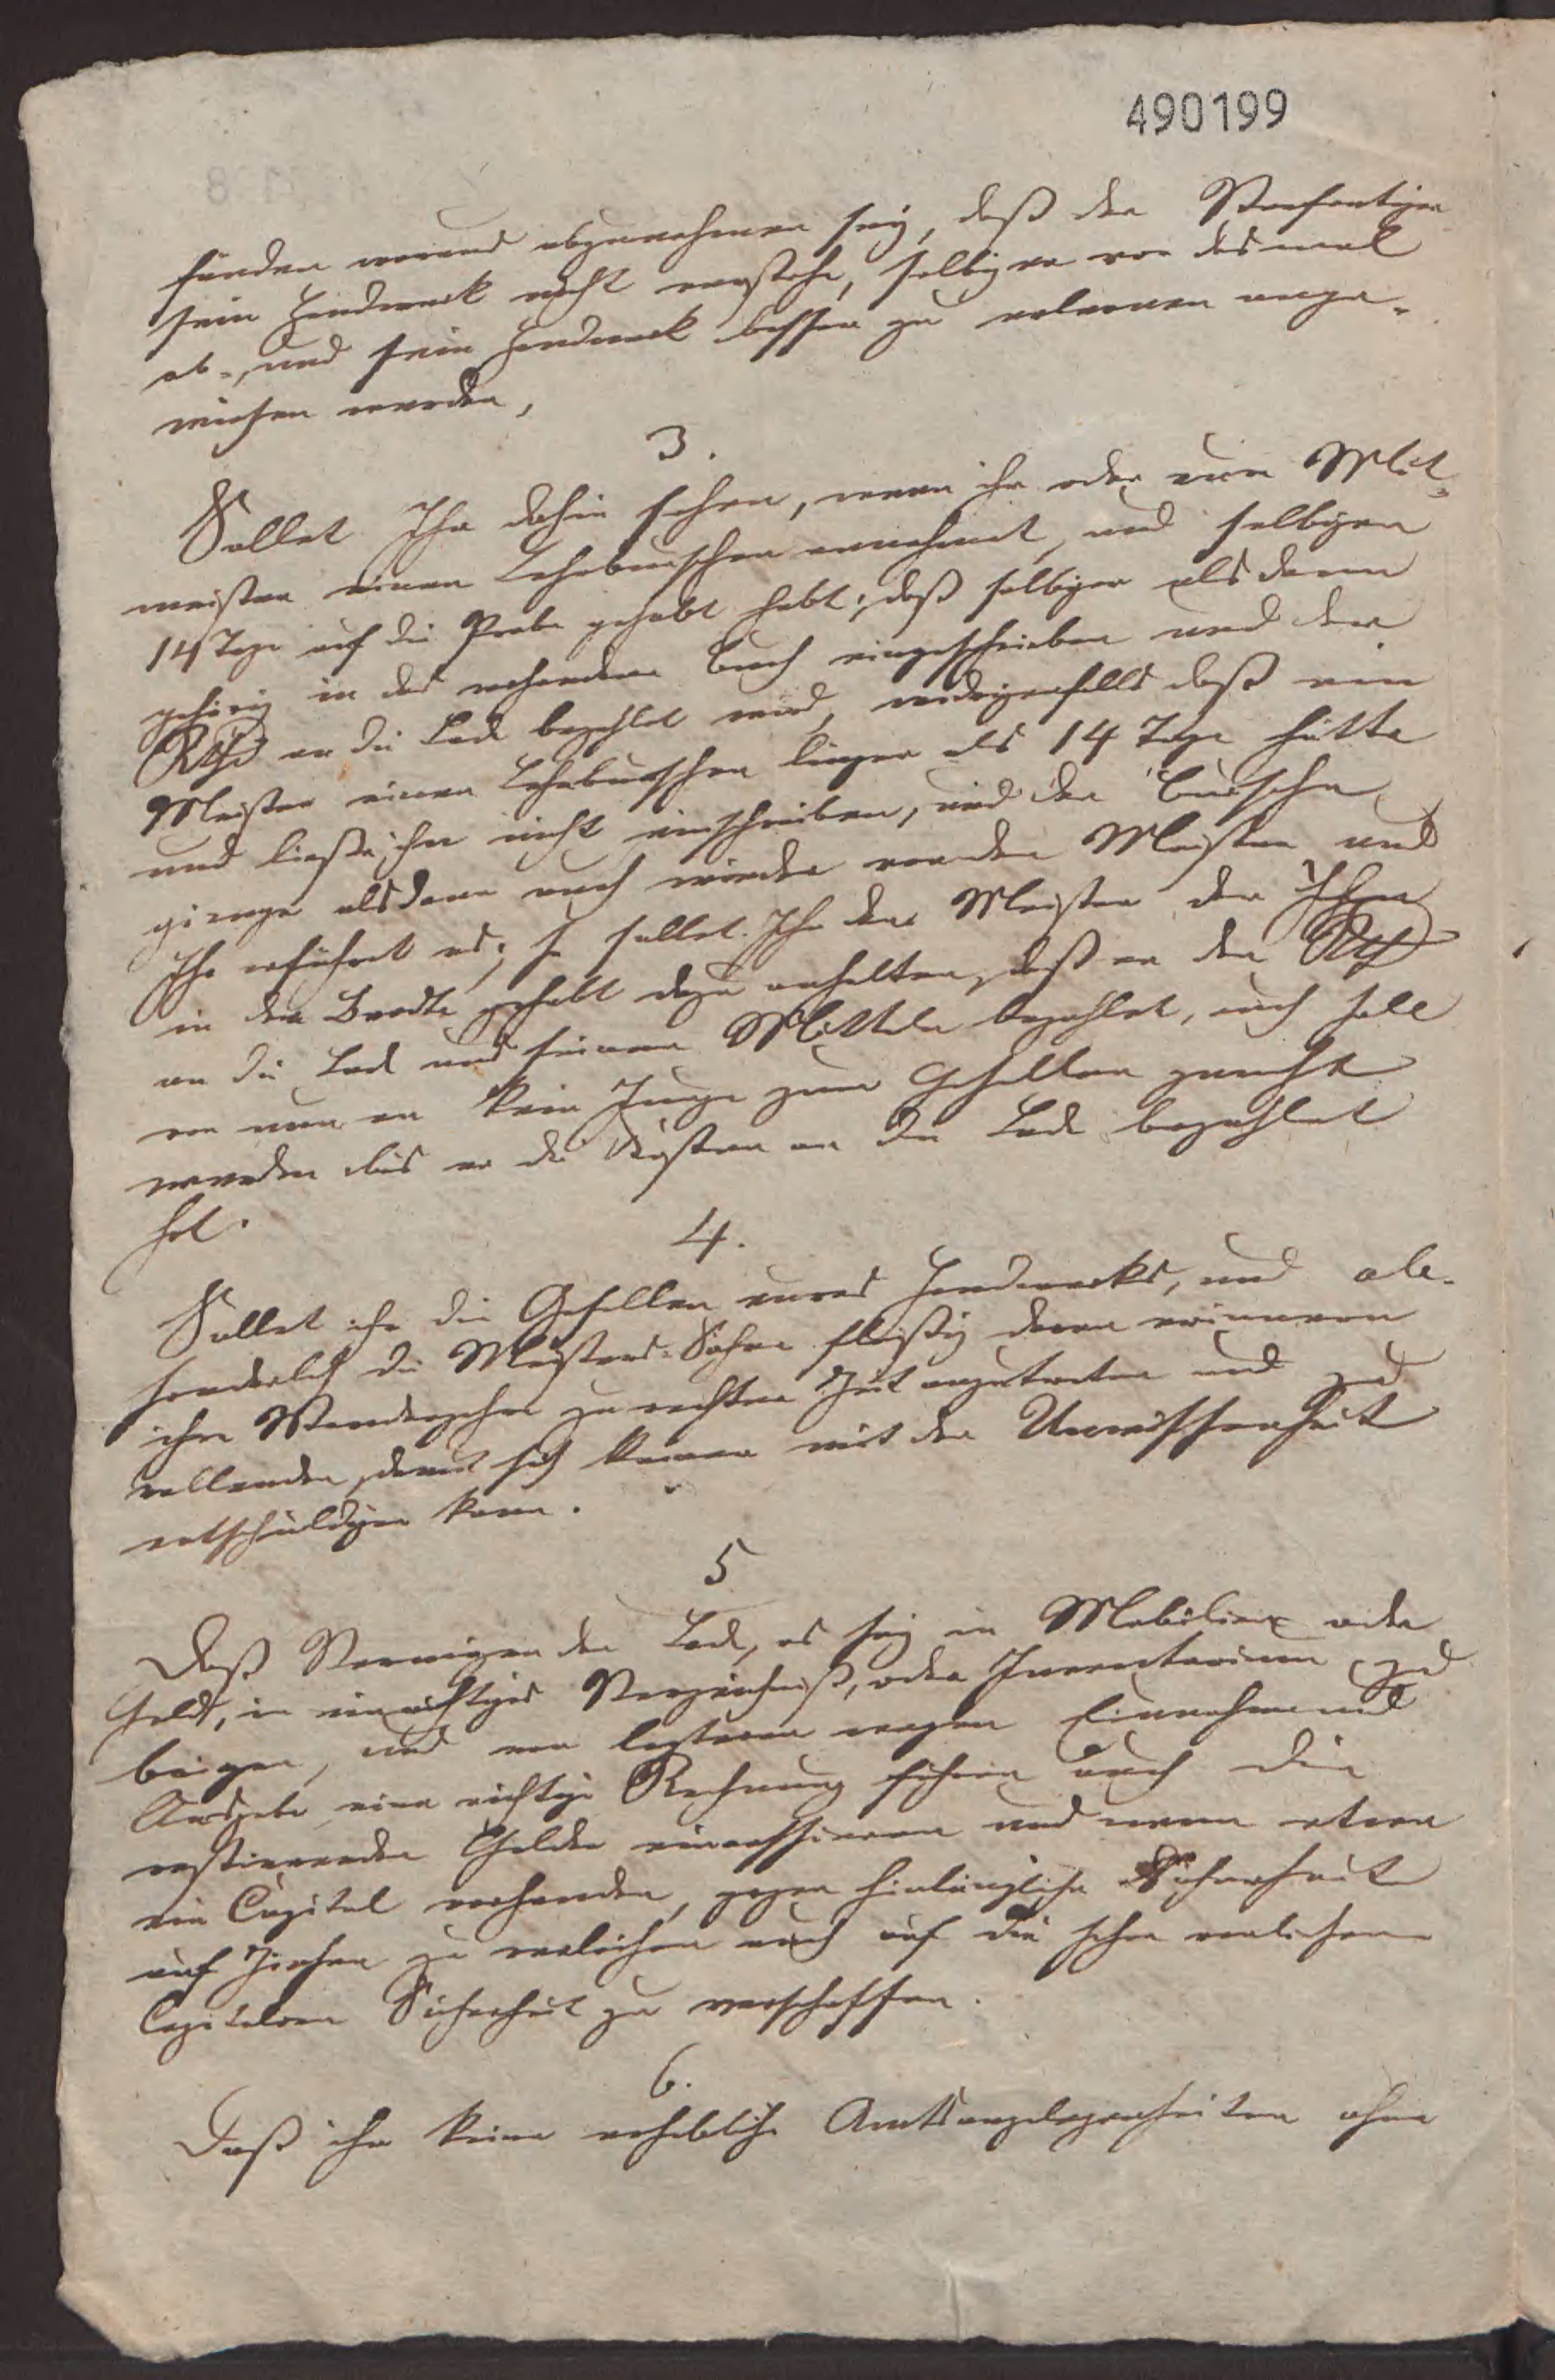 490199
funden woraus abzunehmen sey, daß der Verfertiger
sein Handwerk nicht verstehe, selbiger vor dasmal
ab-, und sein Handwerk besser zu erlernen ange-
wiesen werden,
3.
Sollet Ihr dahin sehen, wenn ihr oder eur Mit-
meister einen Lehrburschen annehmet, und selbigen
14 Tage auf die Probe gehabt habt; daß selbiger alsdenn
gehörig in das vorhandene Buch eingeschrieben und der
Rthl an die Lade bezahlet wird, widrigenfalls daß ein
Meister einen Lehrburschen länger als 14 Tage hätte
und ließe ihn nicht einschreiben, und der Bursche
gienge alsdenn auch wieder von den Meister und
Ihr erführet es; so sollet Ihr den Meister der Ihn
in dem Brodte gehabt dazu anhalten, daß er den Rthl
an die Lade aus seinen Mitteln bezahlet, auch soll
von nun an kein Junge zum Gesellen gemacht
werden bis er die Kosten an die Lade bezahlet
hat.
4.
Sollet ihr die Gesellen eures Handwerks, und ab-
sonderlich die Meisters-Söhne fleißig daran erinnern
ihre Wanderjahre zu rechter Zeit anzutreten und zu
vollenden, damit sich keiner mit der Unwissenheit
entschuldigen kann.
5
Daß Vermögen der Lade, es sey in Mobilien oder
Geld, in ein richtiges Verzeichniß, oder Inventarium zu
bringen, und von letztern wegen Einnahme und
Ausgabe eine richtige Rechnung führen auch die
restirenden Gelder eincassieren und wenn etwa
ein Capital vorhanden, gegen hinlängliche Sicherheit
auf Zinsen zu verleihen auch auf die schon verliehene
Capitalien Sicherheit zu verschaffen.
6.
Daß ihr keine erhebliche Amtsangelegenheiten ohne